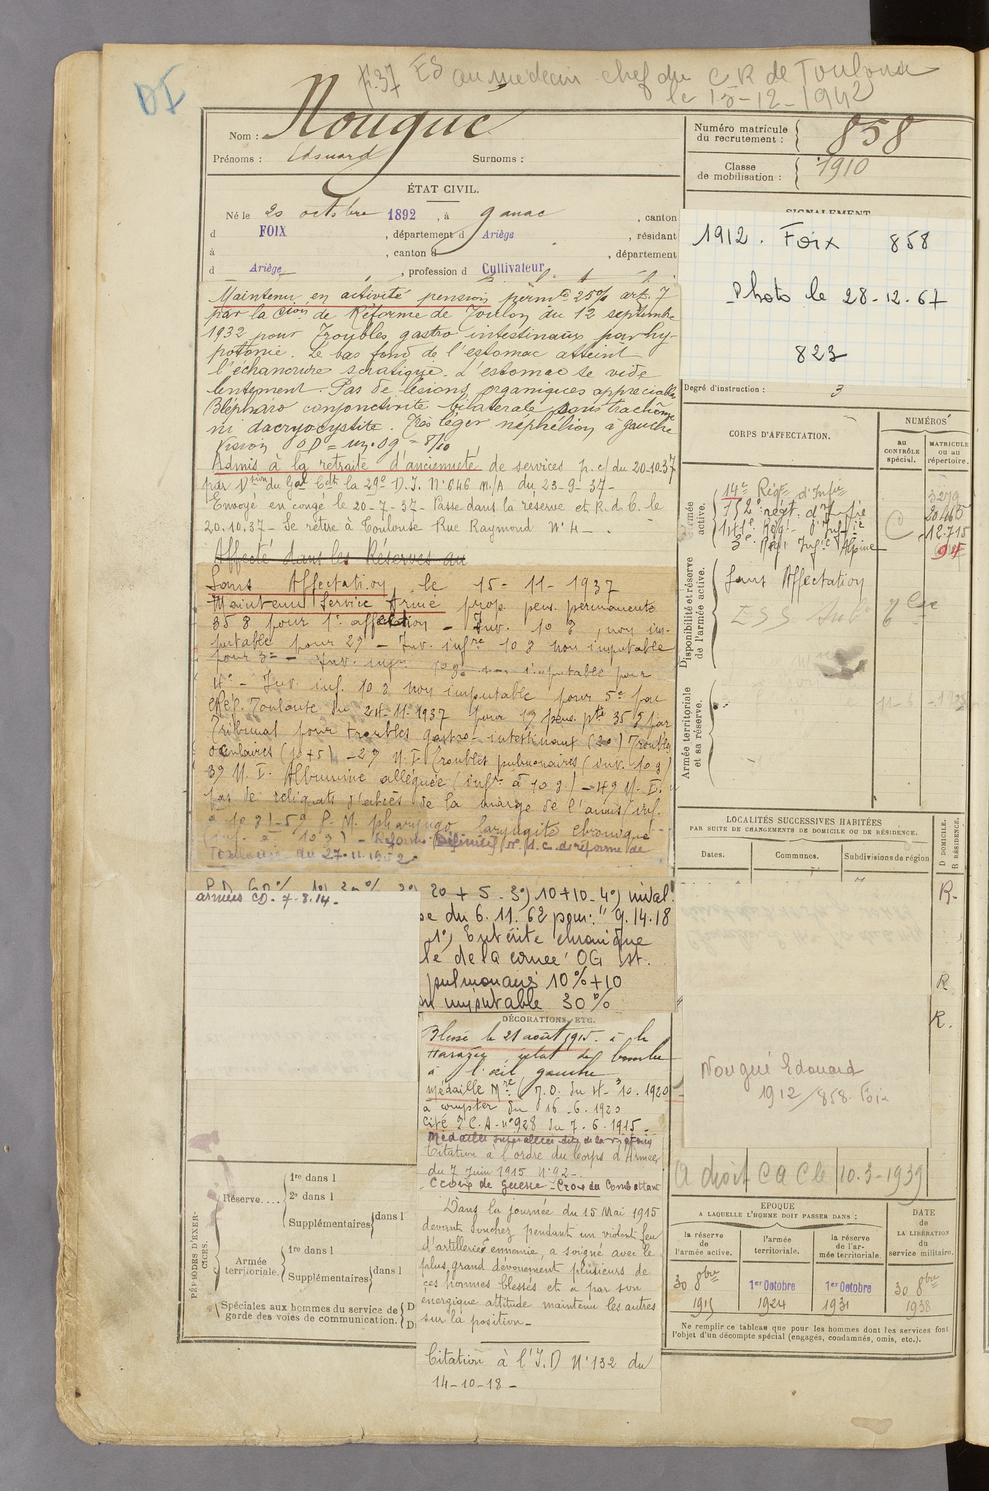 DI
F.37 ES au médecin chef du C R de Toulouse
le 15-12-1942
Nom : Nougué
Prénoms : Edouard Surnoms :
Numéro matricule du recrutement : 858
Classe de mobilisation : 1910
ÉTAT CIVIL.
Né le 20 octobre 1892, à Ganac, canton
d FOIX, département d Ariège, résidant
à , canton d , département
d Ariège, profession d Cultivateur
SIGNALEMENT
1912. Foix 858
Photo le 28-12-67
823
Degré d'instruction : 3
Maintenu en activité pension permte 25% art. 7
par la Cion de Réforme de Toulon du 12 septembre
1932 pour Troubles gastro intestinaux par hy-
potonie. Le bas fond de l'estomac atteint
l'échancrure sciatique. L'estomac se vide
lentement. Pas de lésions organiques appreciables
Blépharo conjonctivite bilatérale sans trachome
ni dacryocystite. Très léger néphélion à gauche
Vision OD = un. OG = 8/10
Admis à la retraite d'ancienneté de services p. c/ du 20.10.37
par Dsion du Gal Cdt la 29e D.I. N° 646 M/A du 23-9-37-
Envoyé en congé le 20-7-37. Passé dans la réserve et R.d.C. le
20.10.37- Se retire à Toulouse Rue Raymond N° 4-
Affecté dans les Réserves au
Sans Affectation, le 15-11-1937
Maintenu Service Armé prop. pens. permanente
35 % pour 1e affection - Inv. 10 %, non im-
putable pour 2e - Inv. infre 10 % non imputable
pour 3e - Inv. infre 10 % non imputable pour
4e - Inv. inf. 10 % non imputable pour 5e par
Toulouse du 24-11-1937 pour 1° pens. pte 35 % par
Tribunal pour troubles gastro-intestinaux (20) Troubles
oculaires (10+5) - 2° N.I. Troubles pulmonaires (inv. 10 %)
3° N.I. Albumine alléguée (infre à 10 %) - 4° N.I.
pas de reliquats d'abcès de la marge de l'anus (inf.
à 10 %) - 5° P.M. pharyngo laryngite chronique
(inf. à 10 %) - Réformé Définitif C. de réforme de
Toulouse du 27.11.1952
armées CD. 7.8.14.
20 + 5. 3°) 10+10. 4°) inval.
se du 6.11.62 pour: " g. 14.18
1°) Entérite chronique
de la cornée OG st.
pulmonaire 10%+10
imputable 30%
DÉCORATIONS, ETC.
Blessé le 21 août 1915. à la
Harazée éclat de bombe
à l'œil gauche
Médaille Mre J.O. du 4-10.1920
à compter du 16-6-1920
Cité O.C.A. n° 928 du 7.6.1915.
Médailles de la Victoire
Citation à l'ordre du Corps d'Armée
du 7 Juin 1915 N° 92-
Croix de Guerre - Croix du Combattant
Dans la journée du 15 Mai 1915
devant Souchez pendant un violent feu
d'artillerie ennemie, a soigné avec le
plus grand dévouement plusieurs de
ces hommes blessés et a par son
énergique attitude maintenu les autres
sur la position-
Citation à l'I.D N° 132 du
14-10-18-
CORPS D'AFFECTATION.
NUMÉROS
au CONTRÔLE spécial.
MATRICULE ou au répertoire.
Armée active.
14e Régt d'Infie 3279
152e régt d'Inf-rie
141e Régt d'Infie 12.715
3e Régt Infie Alpine
Disponibilité et réserve de l'armée active.
Sans Affectation
Armée territoriale et sa réserve.
LOCALITÉS SUCCESSIVES HABITÉES
PAR SUITE DE CHANGEMENTS DE DOMICILE OU DE RÉSIDENCE.
Dates. Communes. Subdivisions de région
D DOMICILE.
R RÉSIDENCE.
R.
R
R.
Nougué Edouard
1912/858 Foix
A droit CACle 10.3-1939
ÉPOQUE
A LAQUELLE L'HOMME DOIT PASSER DANS :
la réserve de l'armée active.
l'armée territoriale.
la réserve de l'armée territoriale.
DATE de la LIBÉRATION du service militaire.
30 8bre 1915
1er Octobre 1924
1er Octobre 1931
30 8bre 1938
Ne remplir ce tableau que pour les hommes dont les services font
l'objet d'un décompte spécial (engagés, condamnés, omis, etc.).
PÉRIODES D'EXERCICES.
Réserve....
1re dans l
2e dans l
Supplémentaires dans l
Armée territoriale.
1re dans l
Supplémentaires dans l
Spéciales aux hommes du service de
garde des voies de communication.